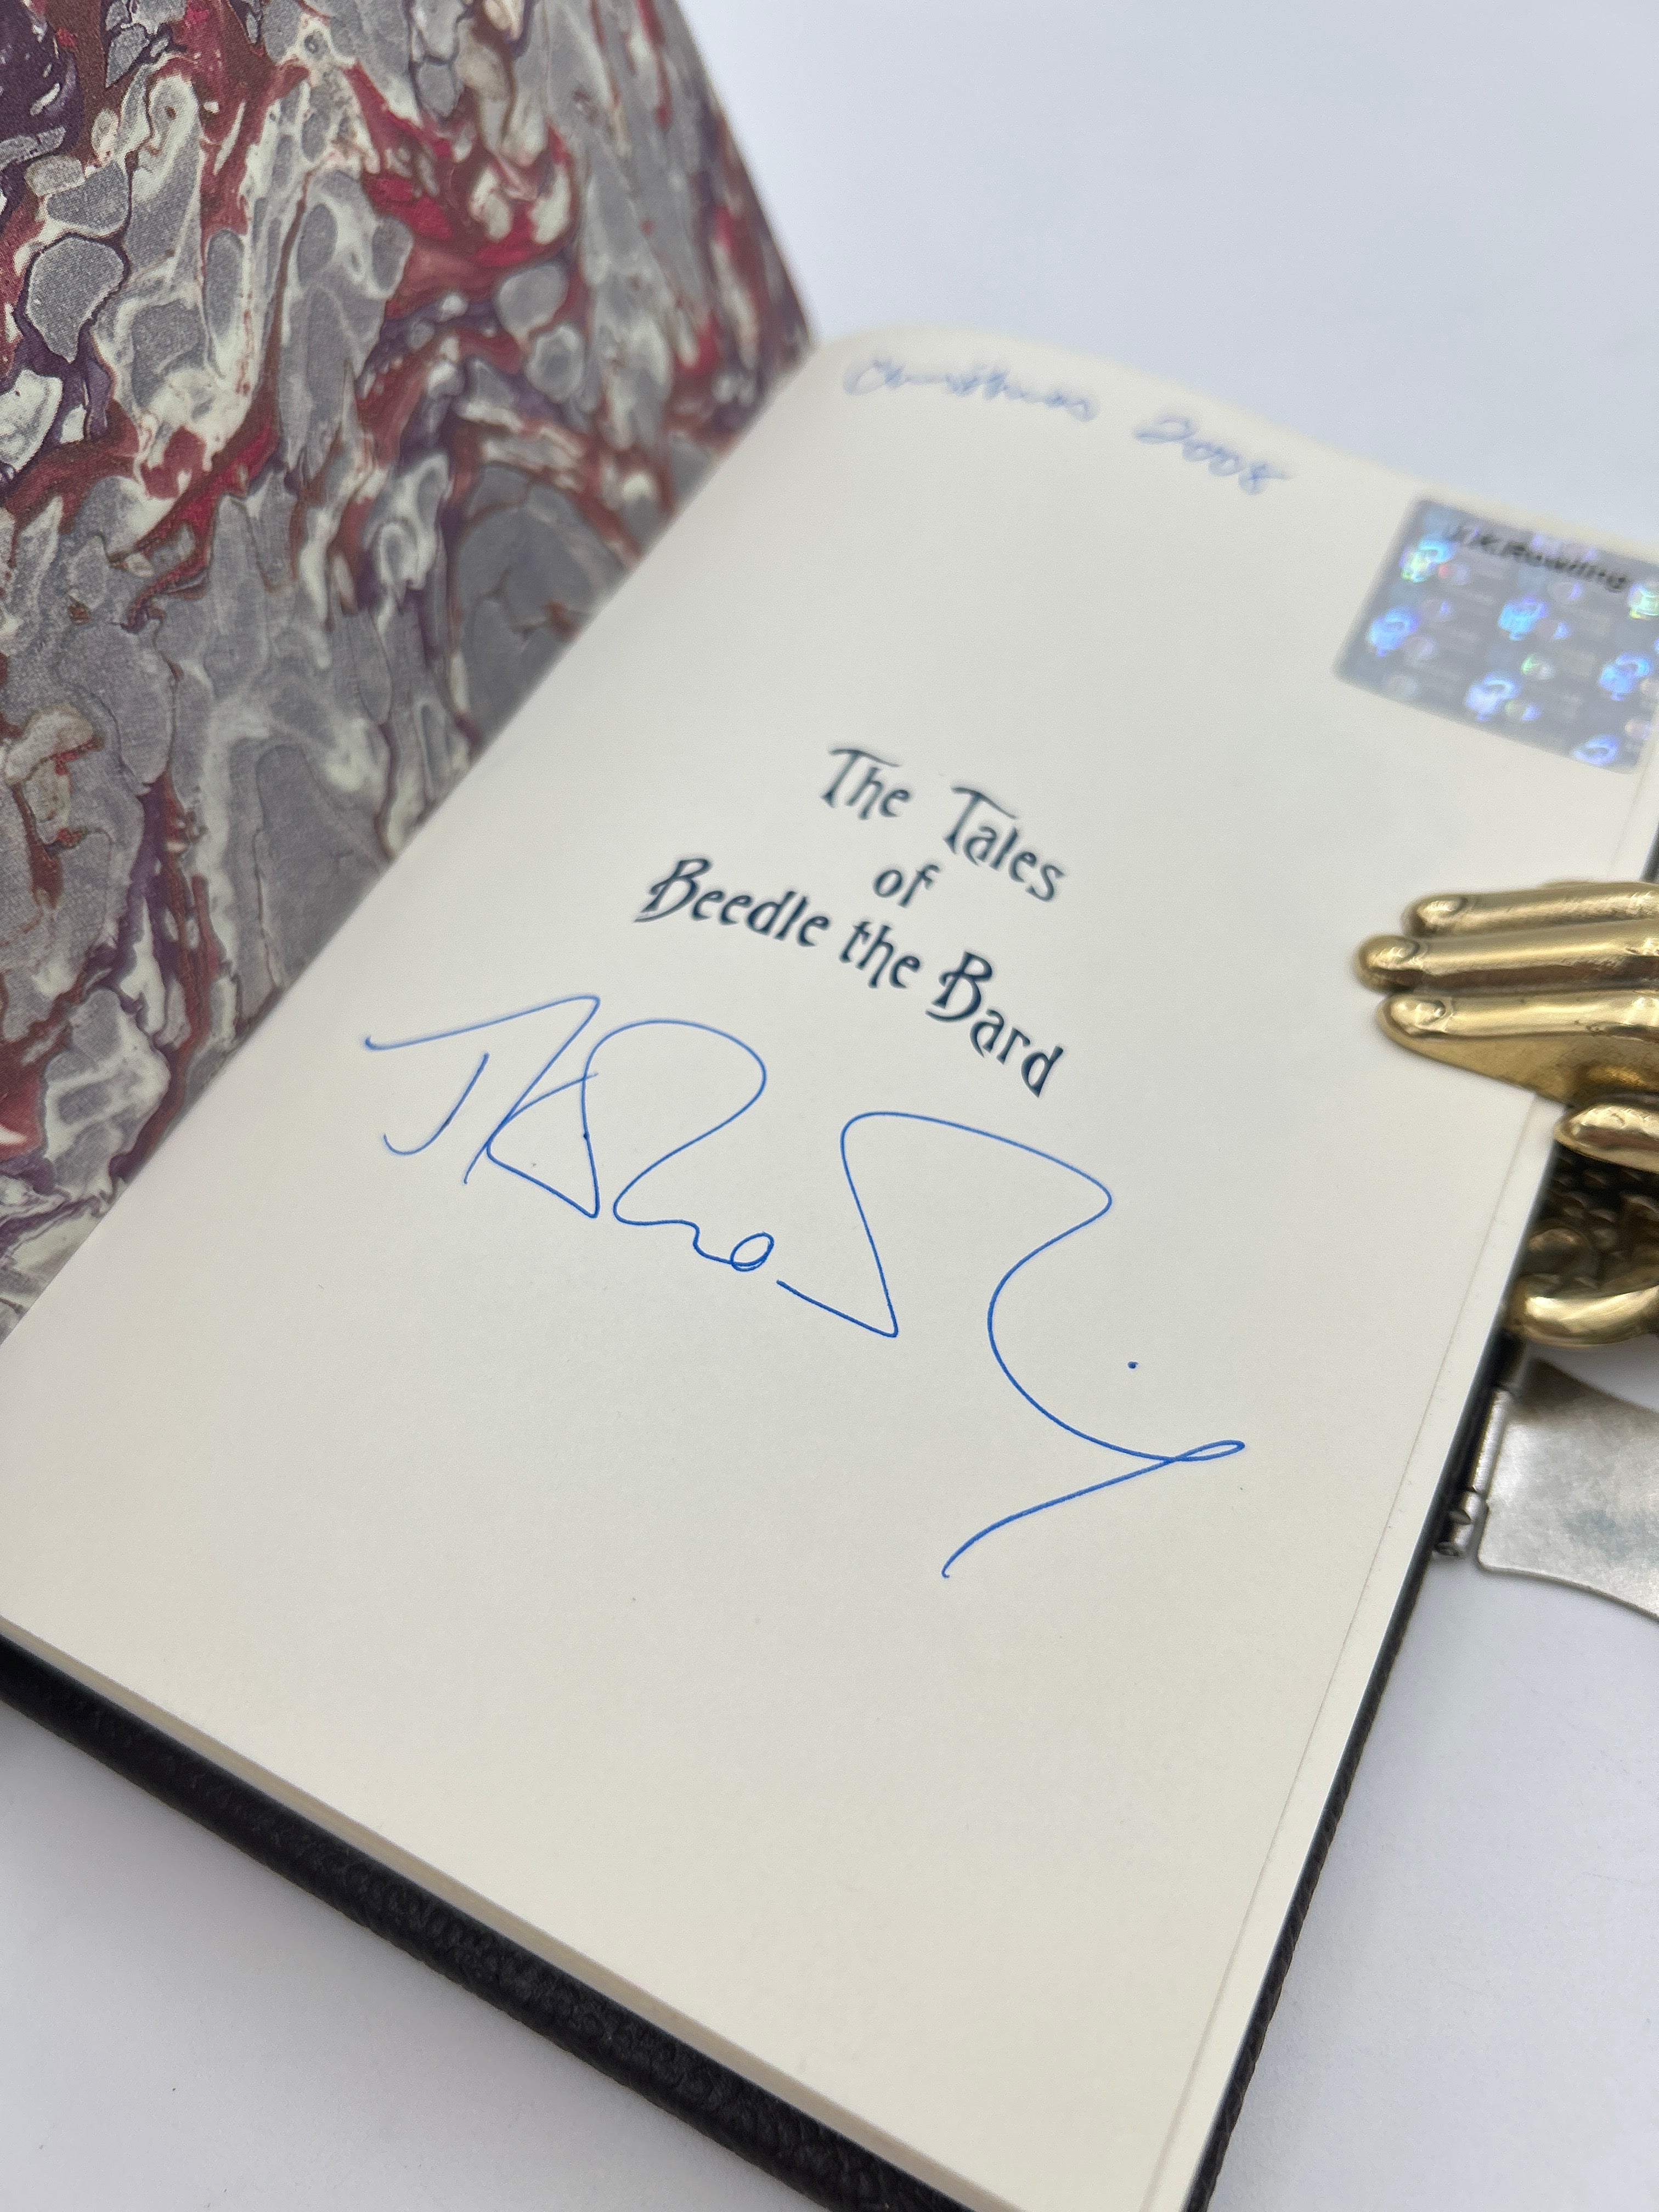 Christmas 2008
J.K. Rowling
The Tales
of
Beedle the Bard
JKRowling